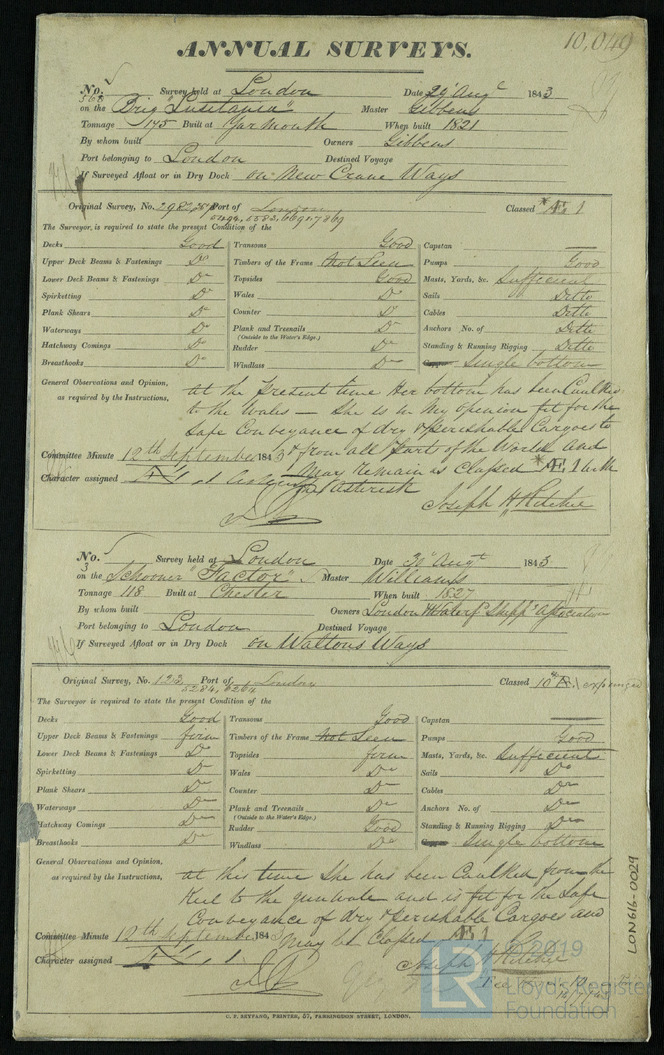 10,049
ANNUAL SURVEYS.
No. 568 Survey held at London Date 29" Augt 1843
on the Brig "Lusitania" Master Gibbens
Tonnage 175 Built at Yarmouth When built 1821
By whom built Owners Gibbens
Port belonging to London Destined Voyage
If Surveyed Afloat or in Dry Dock on New Crane Ways
Original Survey, No. 2982, Port of London Classed *Æ 1
5582, 6691, 7869
The Surveyor, is required to state the present Condition of the
Decks Good Transoms Good Capstan
Upper Deck Beams & Fastenings Do Timbers of the Frame Not Seen Pumps Good
Lower Deck Beams & Fastenings Do Topsides Good Masts, Yards, &c. Sufficient
Spirketting Do Wales Do Sails Ditto
Plank Shears Do Counter Do Cables Ditto
Waterways Do Plank and Treenails Do Anchors No. of Ditto
(Outside to the Water's Edge.)
Hatchway Comings Do Rudder Do Standing & Running Rigging Ditto
Breasthooks Do Windlass Do Copper Single bottom
General Observations and Opinion, at the Present time Her bottom has been Caulked
as required by the Instructions, to the Wales — She is in My opinion fit for the
Safe Conveyance of dry & perishable Cargoes to
Committee Minute 12th September 1843 & from all Parts of the World and
Character assigned May Remain as Classed *Æ 1 with
the Asterisk
Joseph H Ritchie
No. 3 Survey held at London Date 30" Augt 1843
on the Schooner "Factor" Master Williams
Tonnage 118 Built at Chester When built 1827
By whom built Owners London & Waterf Shipp Association
Port belonging to London Destined Voyage
If Surveyed Afloat or in Dry Dock on Waltons Ways
Original Survey, No. 123 Port of London Classed 10 A.1 expunged
5284, 6264
The Surveyor is required to state the present Condition of the
Decks Good Transoms Good Capstan
Upper Deck Beams & Fastenings firm Timbers of the Frame Not Seen Pumps Good
Lower Deck Beams & Fastenings Do Topsides firm Masts, Yards, &c. Sufficient
Spirketting Do Wales Do Sails Do
Plank Shears Do Counter Do Cables Do
Waterways Do Plank and Treenails Do Anchors No. of Do
(Outside to the Water's Edge.)
Hatchway Comings Do Rudder Good Standing & Running Rigging Do
Breasthooks Do Windlass Do Copper Single bottom
General Observations and Opinion, at this time She has been Caulked from the
as required by the Instructions, Keel to the gunwale and is fit for the Safe
Conveyance of dry & perishable Cargoes and
Committee Minute 12th September 1843 May be Classed Æ 1
Character assigned Joseph H Ritchie
C. F. SEYFANG, PRINTER, 57, FARRINGDON STREET, LONDON.
LON616-0029
LR
© 2019
Lloyd's Register
Foundation